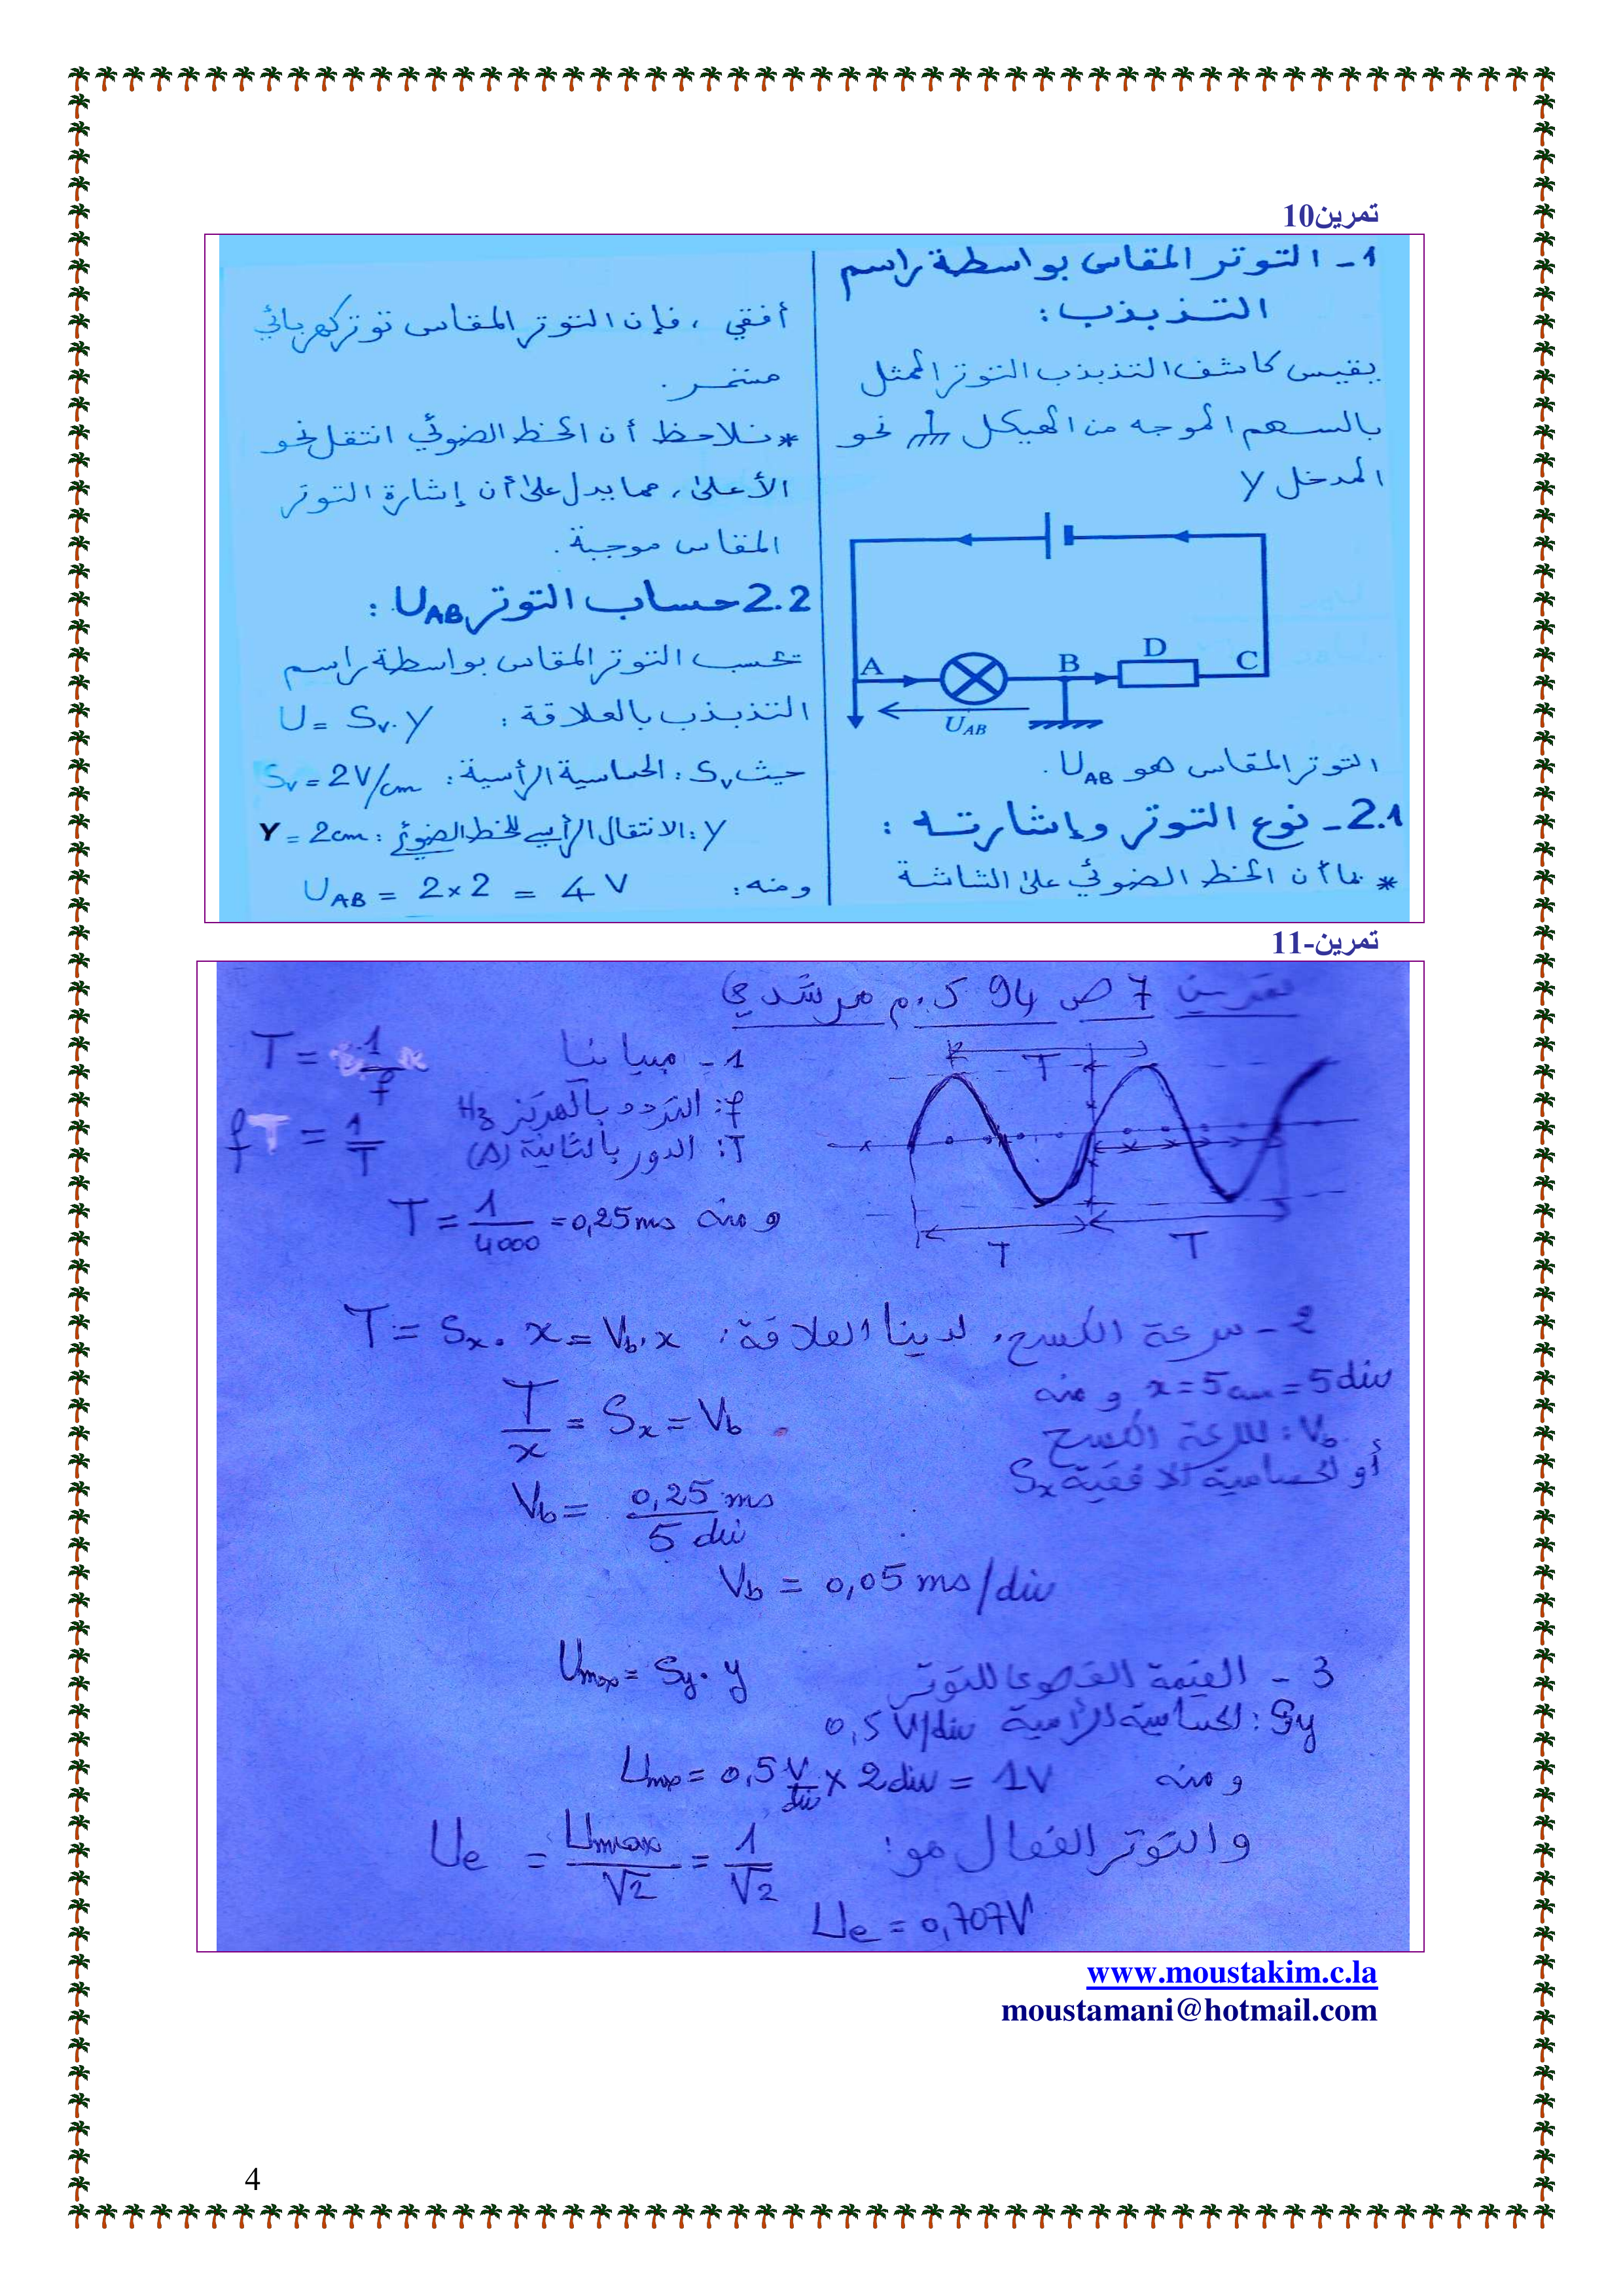 تمرين10
1 - التوتر المقاس بواسطة راسم
التذبذب :
يقيس كاشف التذبذب التوتر الممثل
بالسهم الموجه من الهيكل نحو
المدخل y
A
B
D
C
U_AB
التوتر المقاس هو U_AB .
2.1 - نوع التوتر وإشارته :
* بما أن الخط الضوئي على الشاشة
أفقي ، فإن التوتر المقاس توتر كهربائي
مستمر .
* نلاحظ أن الخط الضوئي انتقل نحو
الأعلى ، مما يدل على أن إشارة التوتر
المقاس موجبة .
2.2 حساب التوتر U_AB :
نحسب التوتر المقاس بواسطة راسم
التذبذب بالعلاقة : U = Sv.y
حيث Sv : الحساسية الرأسية : Sv = 2V/cm
y : الانتقال الرأسي للخط الضوئي : Y = 2cm
ومنه : U_AB = 2×2 = 4 V
تمرين-11
تمرين 7 ص 94 ك.م مرشدي
T
T
T
1 - مبيانيا T = 1/f
f : التردد بالهرتز Hz
T : الدور بالثانية (s) f = 1/T
ومنه T = 1/4000 = 0,25ms
2 - سرعة الكسح، لدينا العلاقة : T = Sx . x = Vb . x
x = 5cm = 5div ومنه
T/x = Sx = Vb
Vb : سرعة الكسح
أو الحساسية الافقية Sx
Vb = 0,25 ms / 5 div
Vb = 0,05 ms/div
3 - القيمة القصوى للتوتر Umax = Sy . y
Sy : الحساسية الرأسية 0,5 V/div
ومنه Umax = 0,5 V/div × 2div = 1V
والتوتر الفعال هو : Ue = Umax/√2 = 1/√2
Ue = 0,707V
www.moustakim.c.la
moustamani@hotmail.com
4